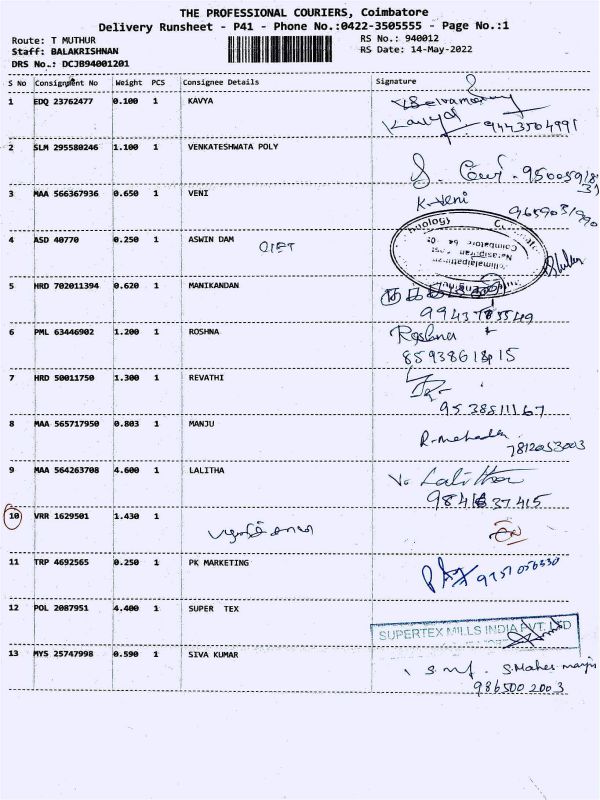 THE PROFESSIONAL COURIERS, Coimbatore
Delivery Runsheet - P41 - Phone No.:0422-3505555 - Page No.:1
Route: T MUTHUR RS No.: 940012
Staff: BALAKRISHNAN RS Date: 14-May-2022
DRS No.: DCJB94001201
S No Consignment No Weight PCS Consignee Details Signature
1 EDQ 23762477 0.100 1 KAVYA
Kavya 9443504991
2 SLM 295580246 1.100 1 VENKATESHWATA POLY
3 MAA 566367936 0.650 1 VENI K.Veni
4 ASD 40770 0.250 1 ASWIN DAM
Coimbatore 64
5 HRD 702011394 0.620 1 MANIKANDAN
6 PML 63446902 1.200 1 ROSHNA Roshna
7 HRD 50011750 1.300 1 REVATHI
9538511167
8 MAA 565717950 0.803 1 MANJU
7812053003
9 MAA 564263708 4.600 1 LALITHA Lalitha
10 VRR 1629501 1.430 1
11 TRP 4692565 0.250 1 PK MARKETING
12 POL 2087951 4.400 1 SUPER TEX
SUPERTEX MILLS INDIA PVT. LTD
13 MYS 25747998 0.590 1 SIVA KUMAR
9865002003